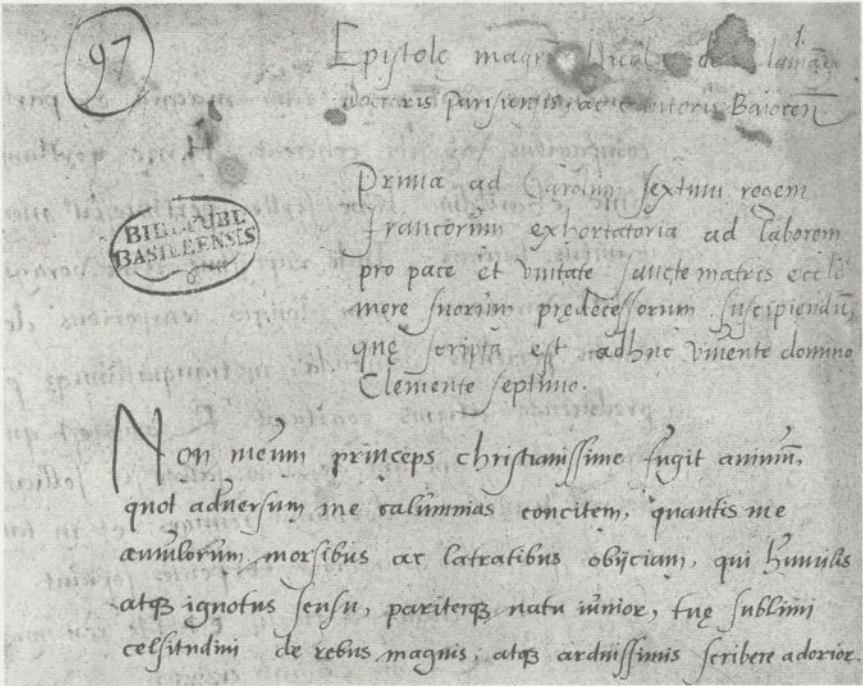 97
1.
Epistolę magri Nicolai de Clamãg
doctoris Parisiensis, ac Cantoris Baiocen̄
BIBL. PUBL
BASILEENSIS
Prima ad Carolum sextum regem
francorum exhortatoria ad laborem
pro pace et vnitate sancte matris eccłē
more suorum prędecessorum suscipiendũ,
quę scripta est adhuc viuente domino
Clemente septimo.
Non meum princeps christianissime fugit animũ,
quot aduersum me calumnias concitem, quantis me
ęmulorum morsibus ac latratibus obijciam, qui humilis
atqꝫ ignotus sensu, pariterqꝫ natu iunior, tuę sublimi
celsitudini de rebus magnis, atqꝫ arduissimis scribere adorior.